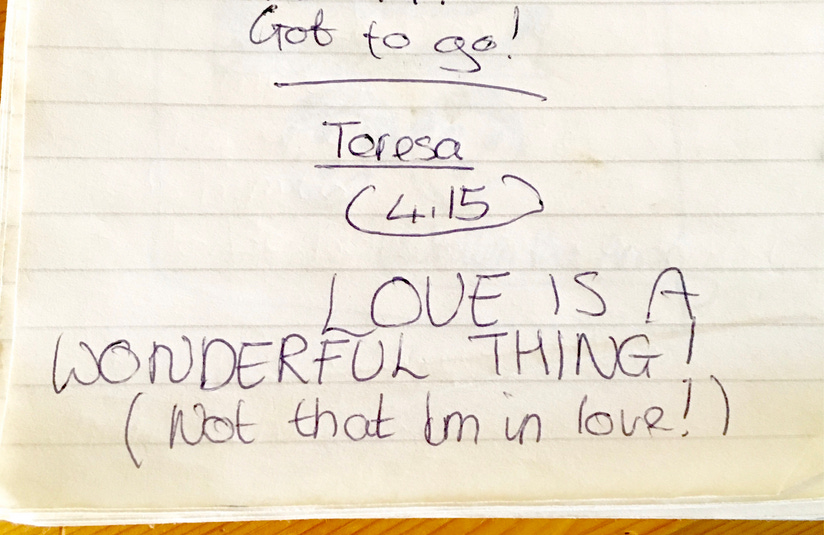 Got to go!
Teresa
(4.15)
LOVE IS A
WONDERFUL THING!
(Not that Im in love!)